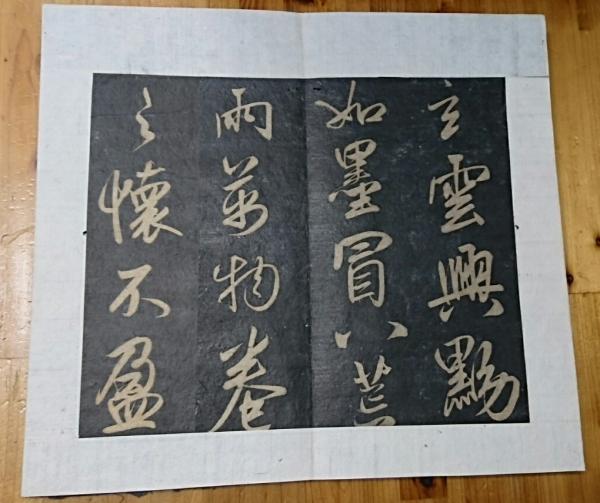 玄雲興黝
如墨冒八荒
雨萬物卷
之懷不盈